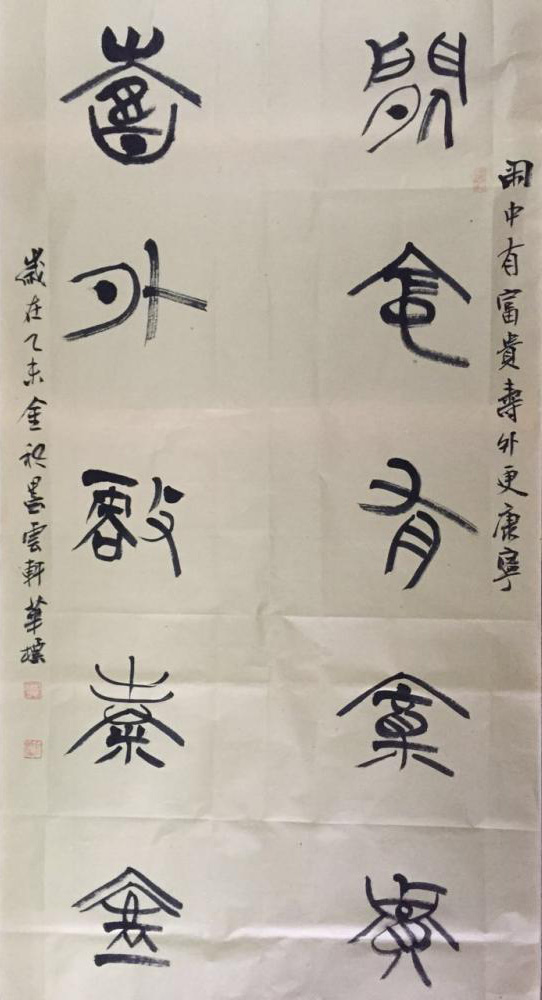 闲中有富貴壽外更康寧
閒中有富貴
壽外更康寧
歲在乙未金秋墨雲軒華